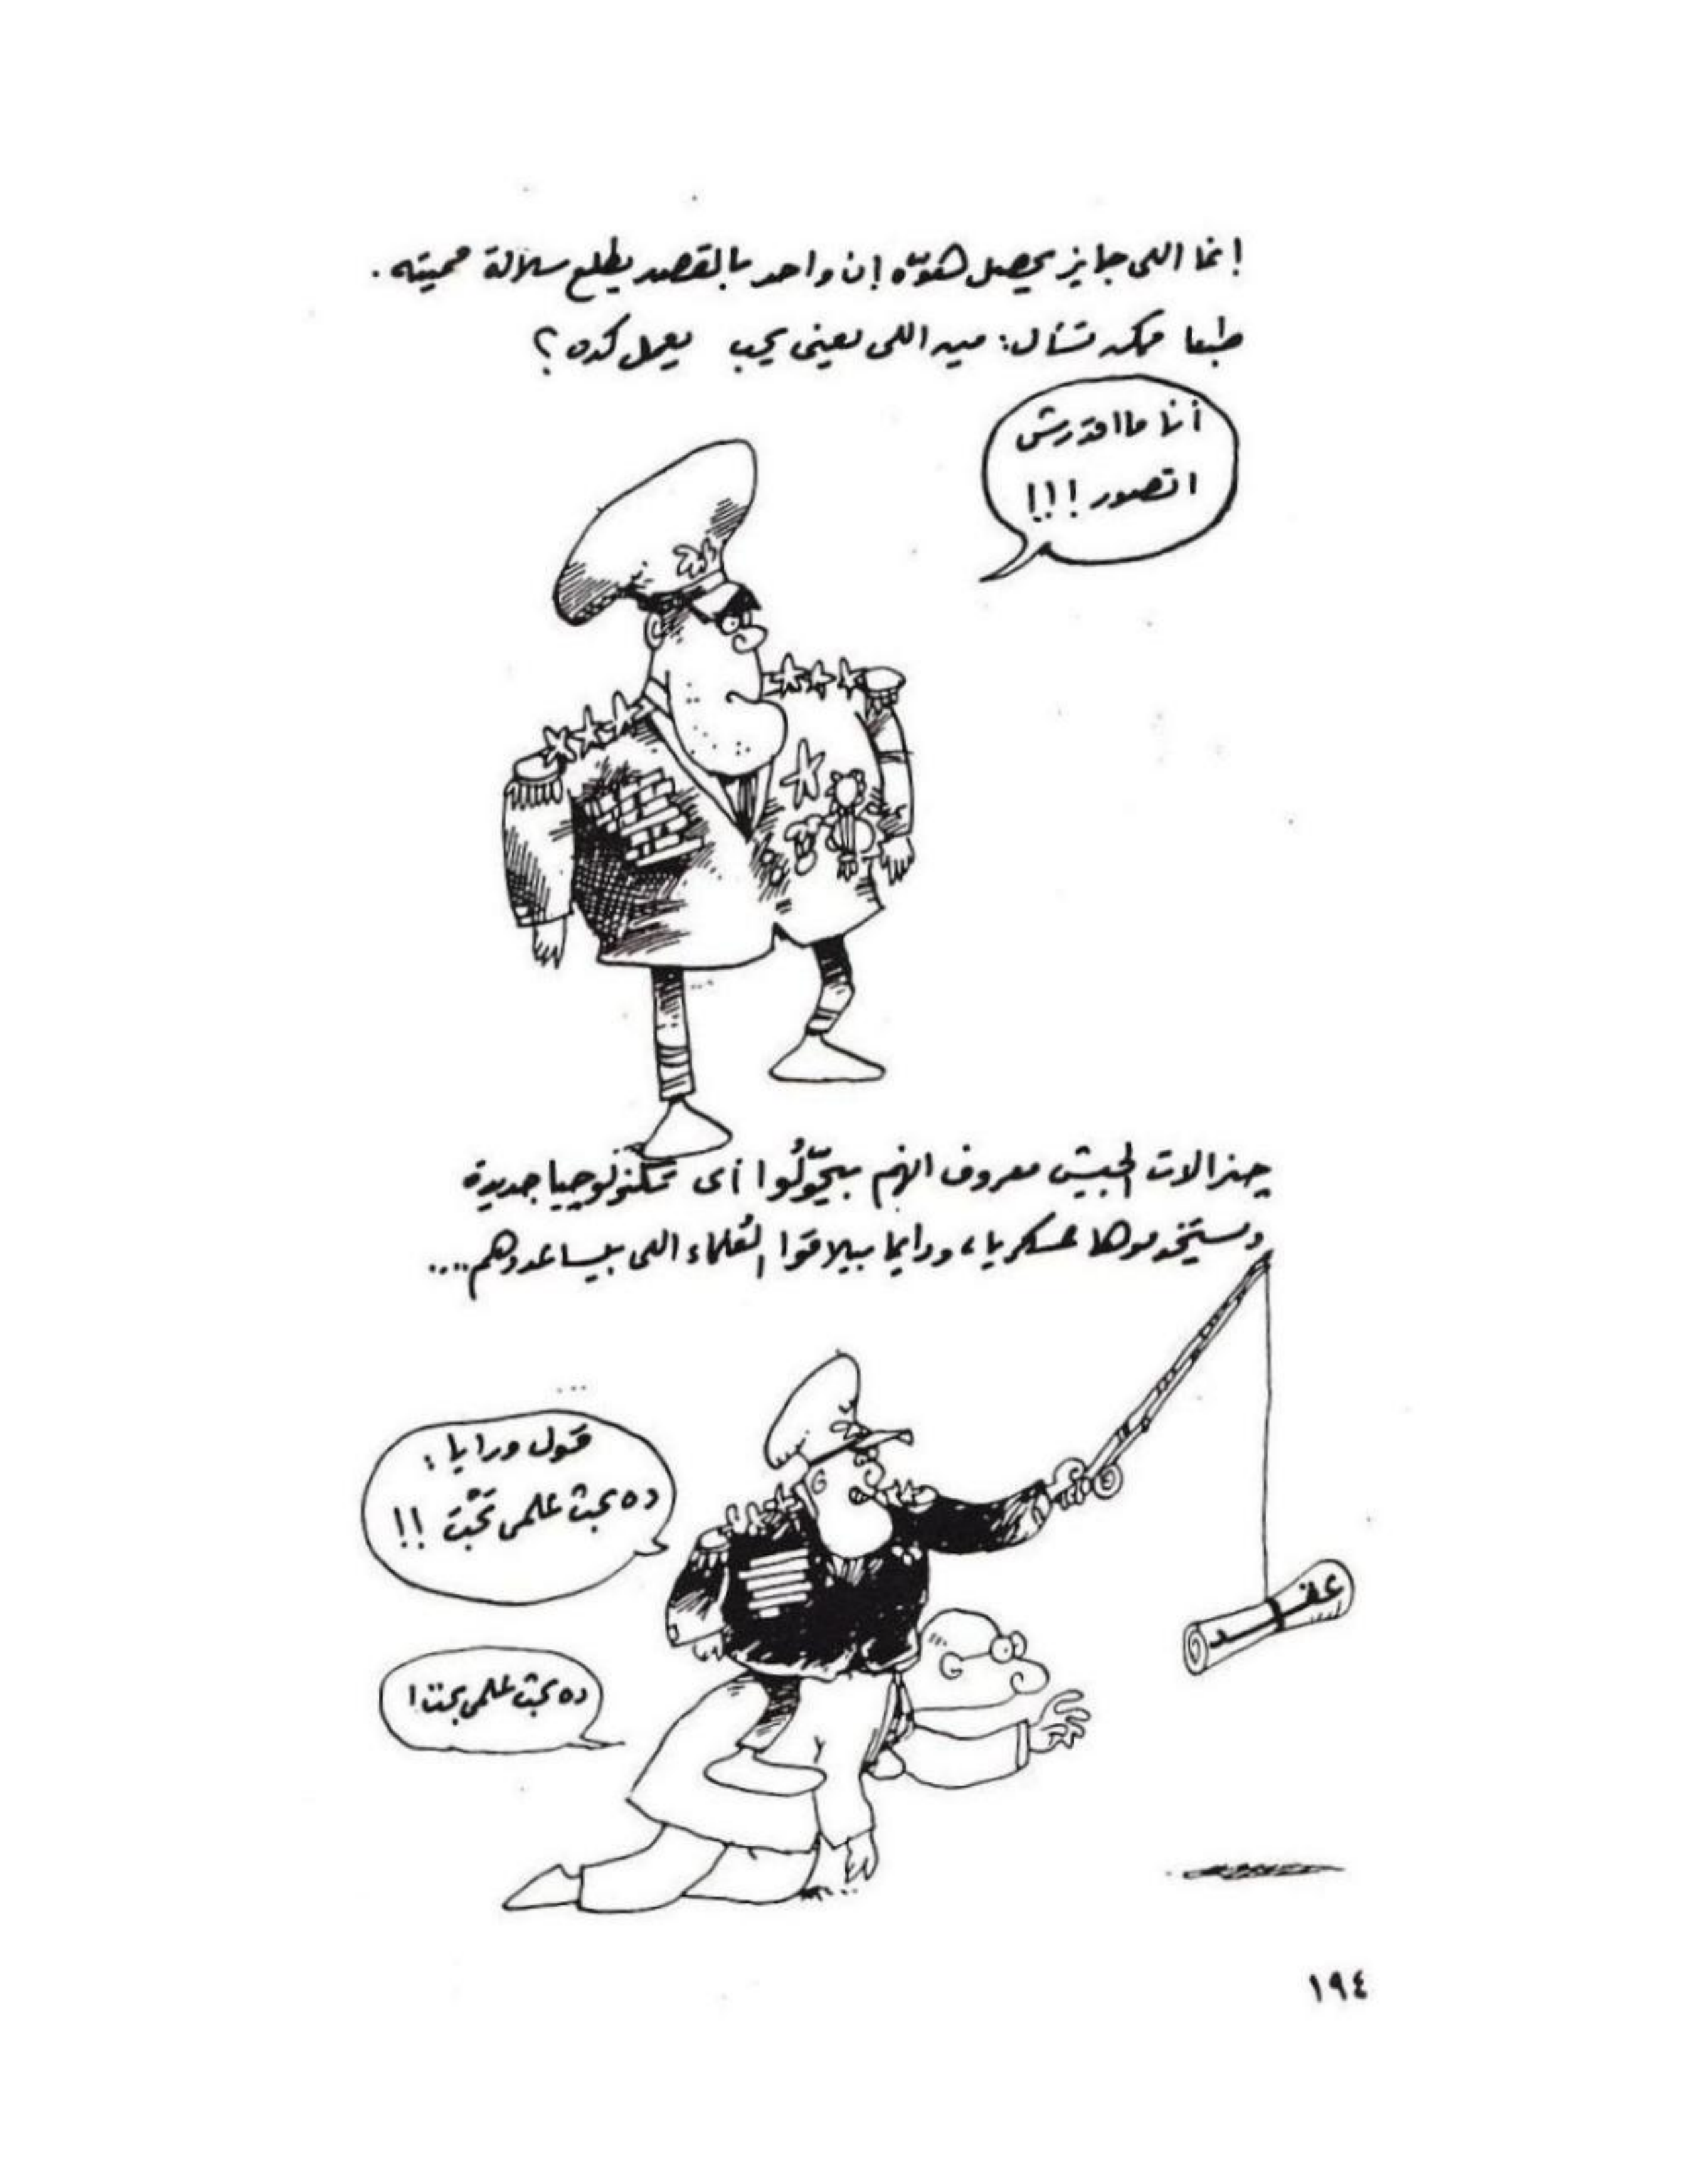 إنما اللى جايز يحصل هوّه إن واحد بالقصد يطلع سلالة مميته .
طبعا ممكن تسأل: مين اللى يعنى يحب يعمل كده ؟
أنا مااقدرش
اتصور !!!
چنرالات الجيش معروف انهم بيحوّلُوا أى تكنولوچيا جديدة
ويستخدموها عسكريا ، ودايما بيلاقوا العُلماء اللى بيساعدوهم ....
قول ورايا :
ده بحث علمى بَحْت !!
ده بحث علمى بحت !
عقد
١٩٤